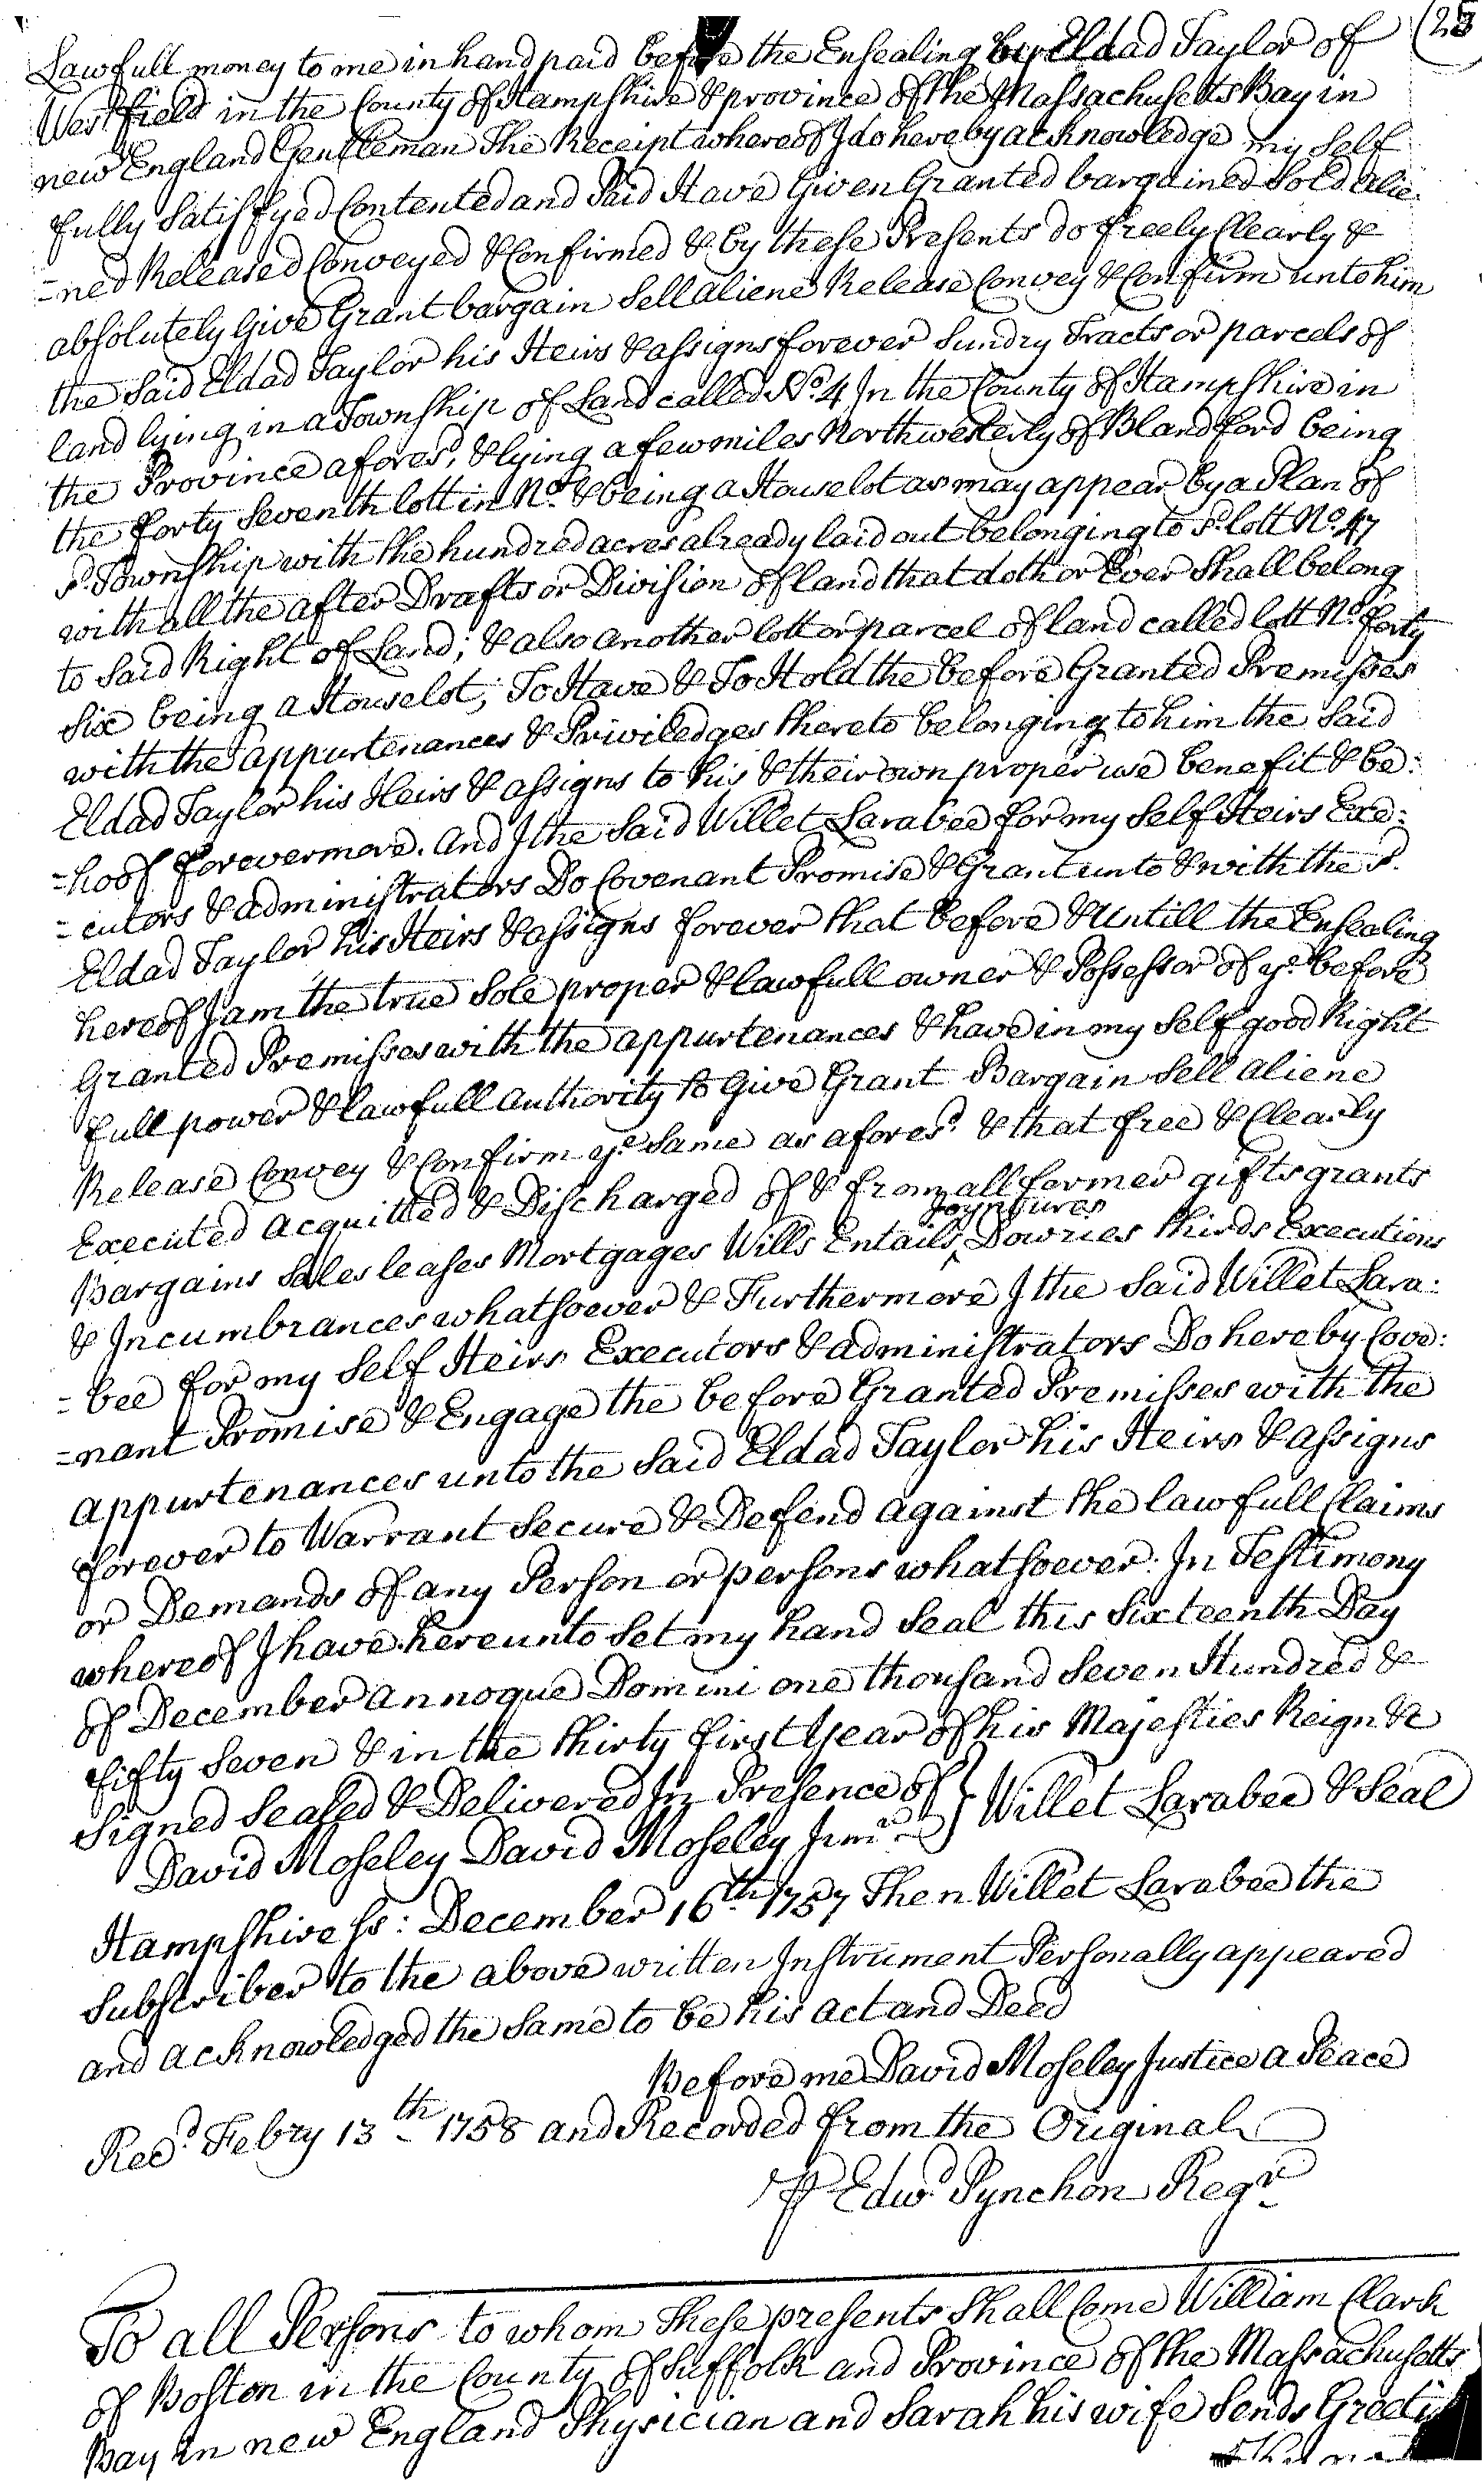 (25
Lawfull money to me in hand paid before the Ensealing by Eldad Taylor of
Westfield in the County of Hampshire & province of the Massachusetts Bay in
new England Gentleman The Receipt whereof I do hereby acknowledge my Self
fully Satisfyed Contented and Paid Have Given Granted bargained Sold Alie-
=ned Released Conveyed & Confirmed & by these Presents do freely Clearly &
absolutely Give Grant bargain Sell aliene Release Convey & Confirm unto him
the Said Eldad Taylor his Heirs & assigns forever Sundry Tracts or parcels of
land lying in a Township of Land called No. 4 In the County of Hampshire in
the Province afores.d & lying a few miles Northwesterly of Blandford being
the forty Seventh lott in No. & being a Houselot as may appear by a Plan of
s.d Township with the hundred acres already laid out belonging to s.d lott No. 47
with all the after Drafts or Division of land that doth or Ever Shall belong
to Said Right of Land; & also another lott or parcel of land called lott No. forty
Six being a Houselot; To Have & To Hold the before Granted Premisses
with the appurtenances & Priviledges thereto belonging to him the Said
Eldad Taylor his Heirs & assigns to his & their own proper use benefit & be:
=hoof forevermore. And I the Said Willet Larabee for my Self Heirs Exe:
=cutors & administrators Do Covenant Promise & Grant unto & with the s.d
Eldad Taylor his Heirs & assigns forever that before & Untill the Ensealing
hereof I am the true Sole proper & lawfull owner & Possessor of ye. before
Granted Premisses with the appurtenances & have in my Self good Right
full power & lawfull authority to Give Grant Bargain Sell aliene
Release Convey & Confirm ye. Same as afores.d & that free & Clearly
Executed acquitted & Discharged of & from all former gifts grants
Bargains Sales leases Mortgages Wills Entails ^Joyntures Dowries thirds Executions
& Incumbrances whatsoever & Furthermore I the Said Willet Lara:
=bee for my Self Heirs Executors & administrators Do hereby Cove:
=nant Promise & Engage the before Granted Premisses with the
appurtenances unto the Said Eldad Taylor his Heirs & assigns
forever to Warrant Secure & Defend against the lawfull Claims
or Demands of any Person or persons whatsoever: In Testimony
whereof I have hereunto Set my hand Seal this Sixteenth Day
of December annoque Domini one thousand Seven Hundred &
fifty Seven & in the thirty first Year of his Majesties Reign &c
Signed Sealed & Delivered In Presence of } Willet Larabee & Seal
David Moseley David Moseley Junr.
Hampshire ss: December 16th. 1757 Then Willet Larabee the
Subscriber to the above written Instrument Personally appeared
and acknowledged the Same to be his act and Deed
Before me David Moseley Justice a Peace
Rec.d Febry 13th 1758 and Recorded from the Original
P Edw.d Pynchon Regr.
To all Persons to whom These presents Shall Come William Clark
of Boston in the County of Suffolk and Province of the Massachusetts
Bay in new England Physician and Sarah his wife Sends